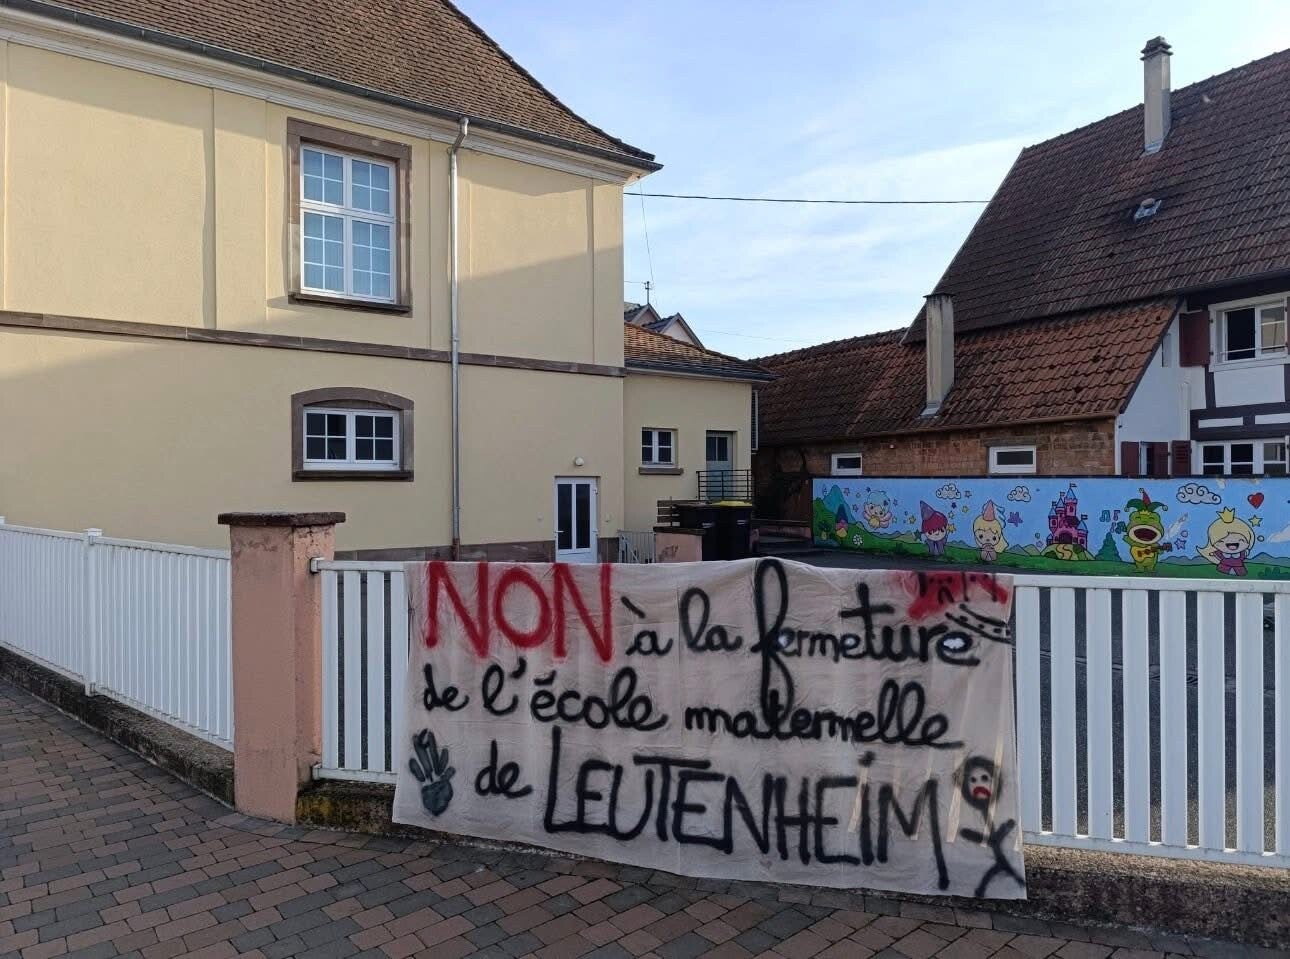 NON à la fermeture
de l'école maternelle
de LEUTENHEIM